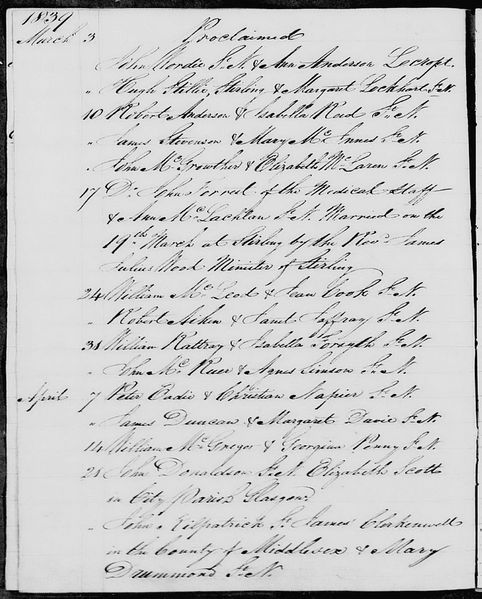 1839
March 3 Proclaimed
John Mordie St. N. & Ann Anderson Lecropt
" Hugh Stiller, Stirling & Margaret Lockhart St. N.
10 Robert Anderson & Isabella Reid St. N.
" James Stevenson & Mary Mc. Innes St. N.
" John Mc. Growther & Elizabeth Mc. Laren St. N.
17 Dr. John of the Medical Staff
& Ann Mc. Lachlan St. N. Married on the
19th March at Stirling by the Revd. James
Julius Wood Minister of Stirling
24 William Mc. Leod & Jean Cook St. N.
" Robert Aiken & Janet Jaffray St. N.
31 William Rattray & Isabella Forsyth St. N.
" John Mc. & Agnes Simson St. N.
April 7 Peter Eadie & Christian Napier St. N.
" James Duncan & Margaret Davie St. N.
14 William Mc. Gregor & Georgina Penny St. N.
28 John Donaldson St. N. Elizabeth Scott
in City Parish Glasgow.
" John Kilpatrick St. James Clerkenwell
in the County of Middlesex & Mary
Drummond St. N.